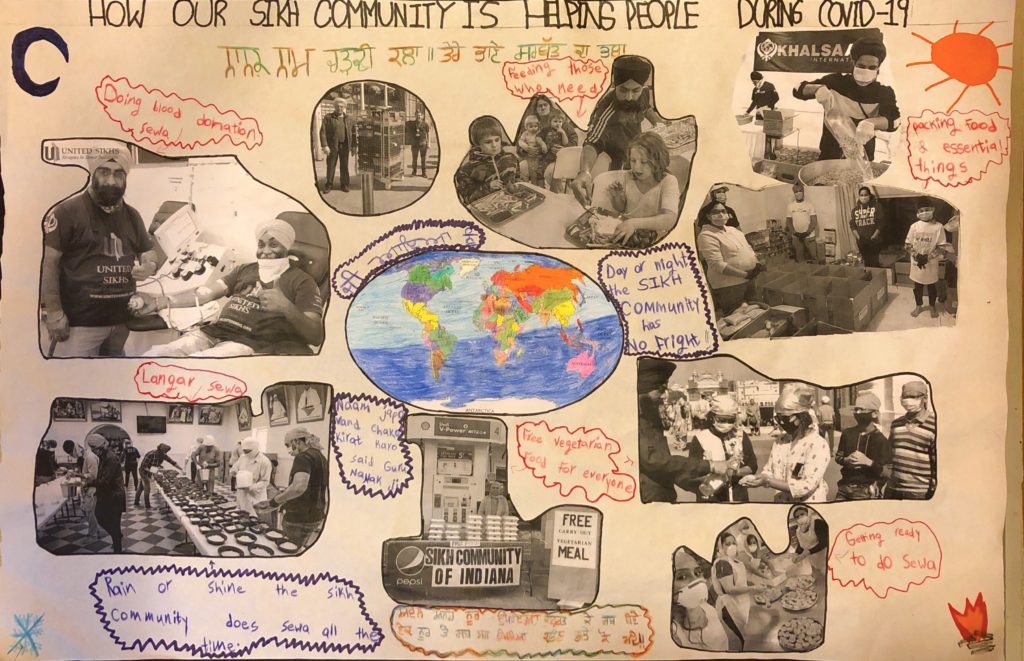 HOW OUR SIKH COMMUNITY IS HELPING PEOPLE DURING COVID-19
ਨਾਨਕ ਨਾਮ ਚੜ੍ਹਦੀ ਕਲਾ ॥ ਤੇਰੇ ਭਾਣੇ ਸਰਬੱਤ ਦਾ ਭਲਾ
Doing blood donation
sewa!
Feeding those
who need
KHALSA
INTERNAT
packing food
& essential
things
UNITED SIKHS
UNITED
SIKHS
UNITED
SIKHS
SUPER
TRACK
Day or night
the SIKH
COMMUNITY
has
No Fright!
ANTARCTICA
Langar sewa
Naam japo
Vand Chako
Kirat Karo
said Guru
Nanak Ji
Free vegetarian
food for everyone
Shell
V-Power
4
pepsi
SIKH COMMUNITY
OF INDIANA
FREE
CARRY OUT
VEGETARIAN
MEAL
Getting ready
to do Sewa
Rain or shine the sikh
Community does sewa all the
time!